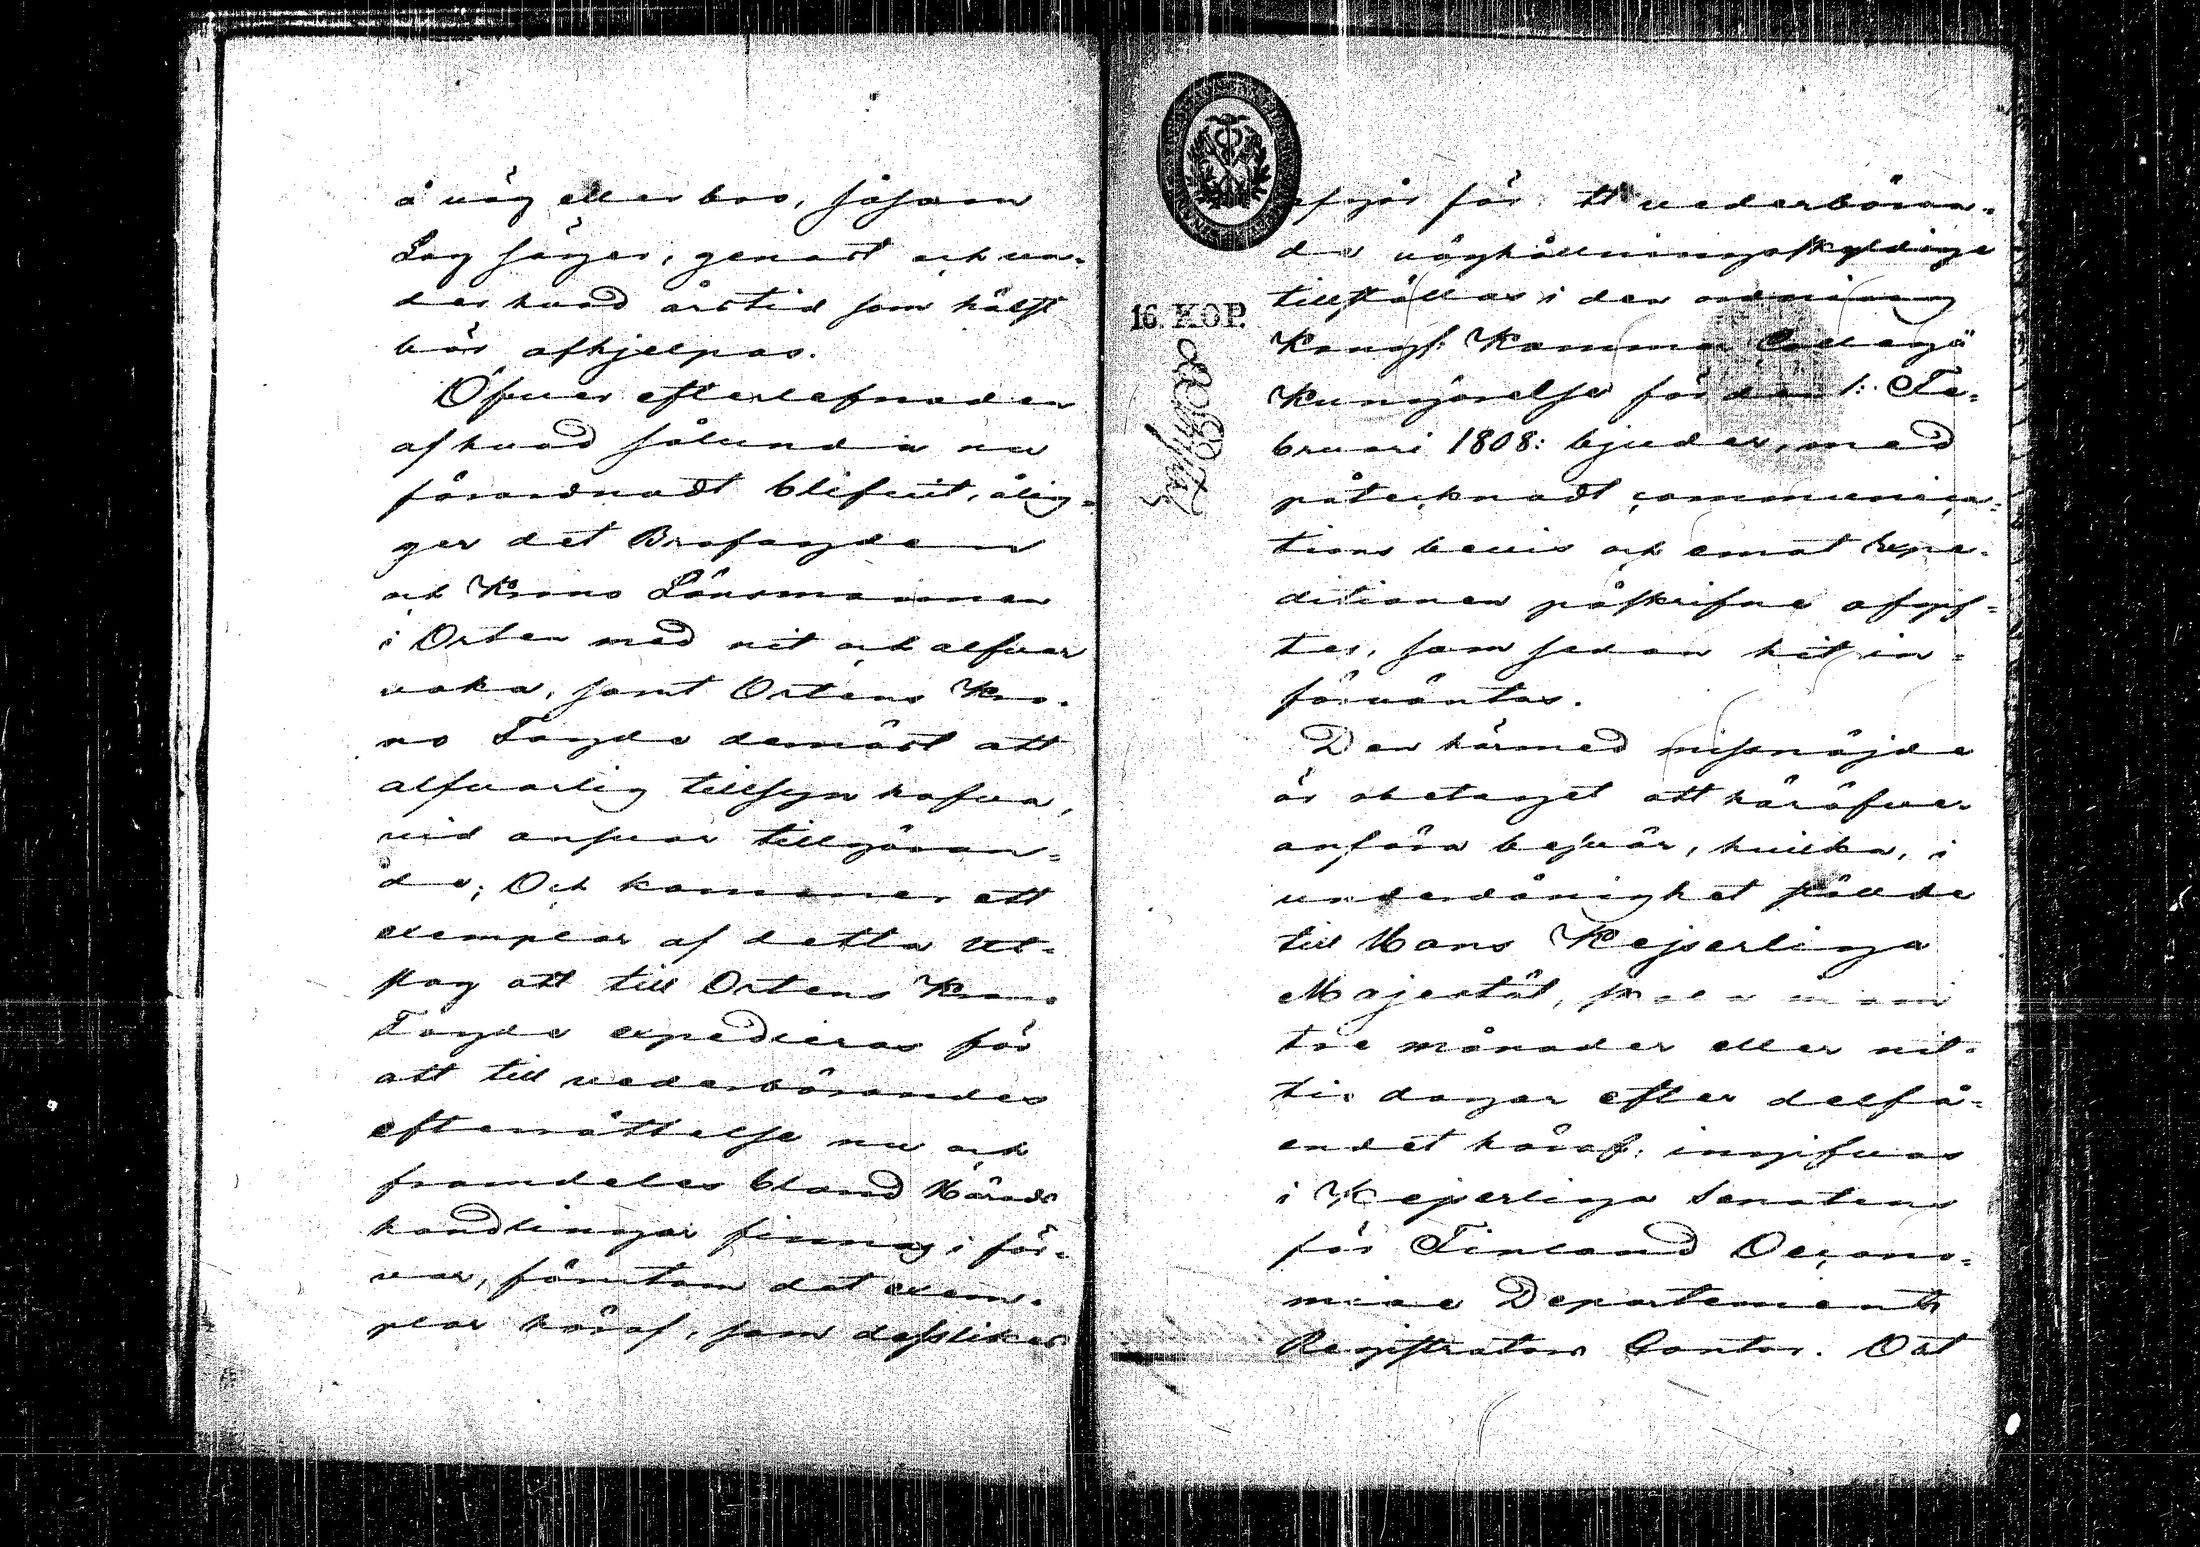 å väg eller bro, såsom
Lag säger, genast och un-
der hvad årstid som hälst
bör afhjelpas.
Öfver efterlefnaden
af hvad sålunda nu
förordnadt blifvit, ålig-
ger det Brofogden
och Krono Länsmannen
i Orten med nit och alfvar
vaka, samt Ortens Kro-
no Fogde demäst att
alfvarlig tillsyn hafva,
vid ansvar tillgöran-
de; Och kommer ett
exemplar af detta Ut-
slag att till Ortens Krono
Fogde expedieras för
att till vederbörandes
efterrättelse nu och
framdeles bland Härads
handlingar finnas i för-
var, förutom det exem-
plar häraf, som dessliker
afgår för att vederböran-
de väghållningsskyldige
tillställas i den ordning
Kongl: Kammar Collegii
Kungörelse för den 1: Fe-
bruari 1808: bjuder, med
påtecknadt communica-
tions bevis och emot Expe-
ditionen påskrifne afgif-
ter, som sedan hit in-
förväntas.
Den härmed missnöjde
är obetaget att häröfver
anföra besvär, hvilka, i
underdånighet stälde
till Hans Kejserliga
Majestät, skola inom
tre månader eller nit-
tio dagar efter delfå-
endet häraf, ingifvas
i Kejserliga Senatens
för Finland Oecono-
miae Departements
Registrators Contor. Ort
16. KOP.